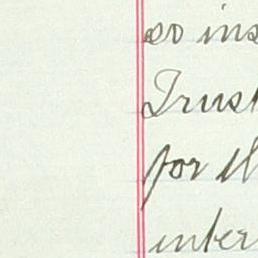 so ins
Trust
for th
inter